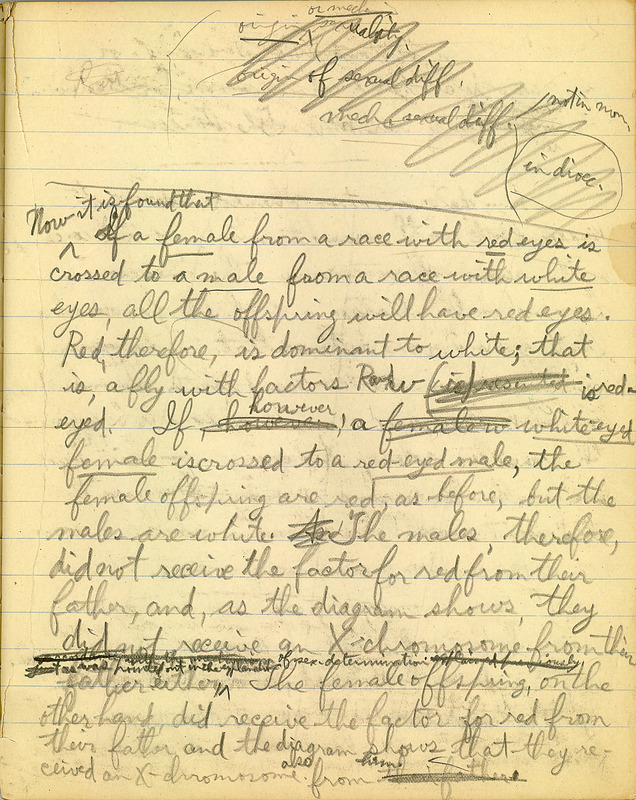 or med
origin sexuality.
origin of sexual diff.
mech sexual diff.
not in mon.
in dioec.
Now it is found that
If a female from a race with red eyes is
crossed to a male from a race with white
eyes, all the offspring will have red eyes.
Red, therefore, is dominant to white; that
is, a fly with factors R w is red-
eyed. If, however, a female w white eyed
however
female is crossed to a red eyed male, the
female offspring are red, as before, but the
males are white. The males, therefore,
did not receive the factor for red from their
father, and, as the diagram shows, they
did not receive an X-chromosome from their
as was pointed out in the of sex-determination previously
father either. The female offspring, on the
other hand, did receive the factor for red from
their father and the diagram shows that they re-
ceived an X-chromosome also from him. their father